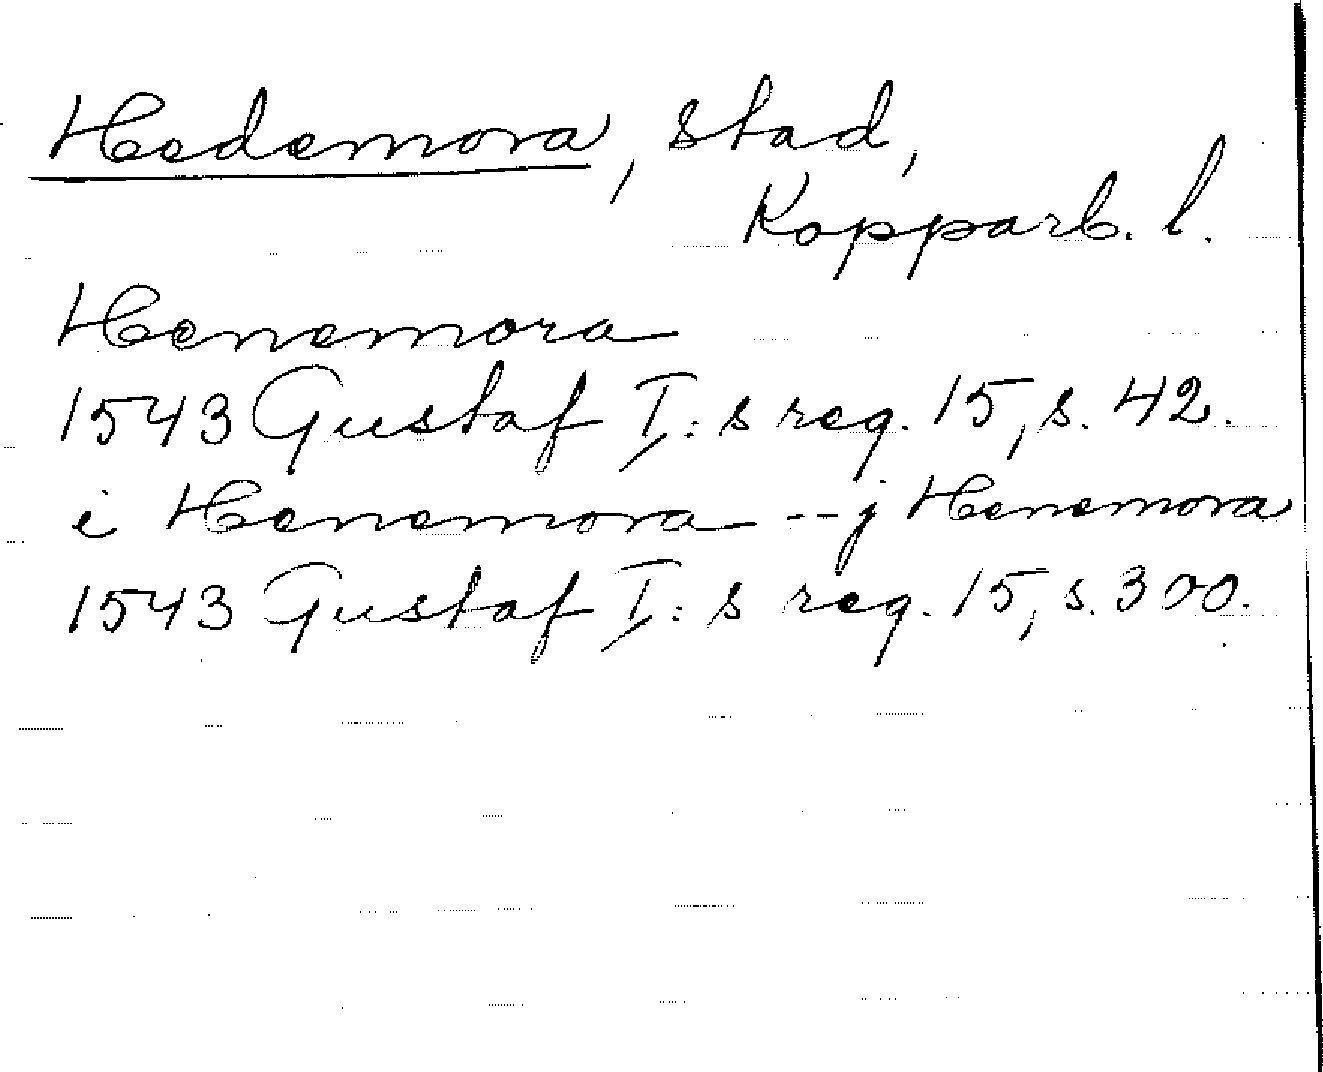 Hedemora, stad,
Kopparb. l.
Henemora
1543 Gustaf I:s reg. 15, s. 42.
i Henemora -- j Henemora
1543 Gustaf I:s reg. 15, s. 300.